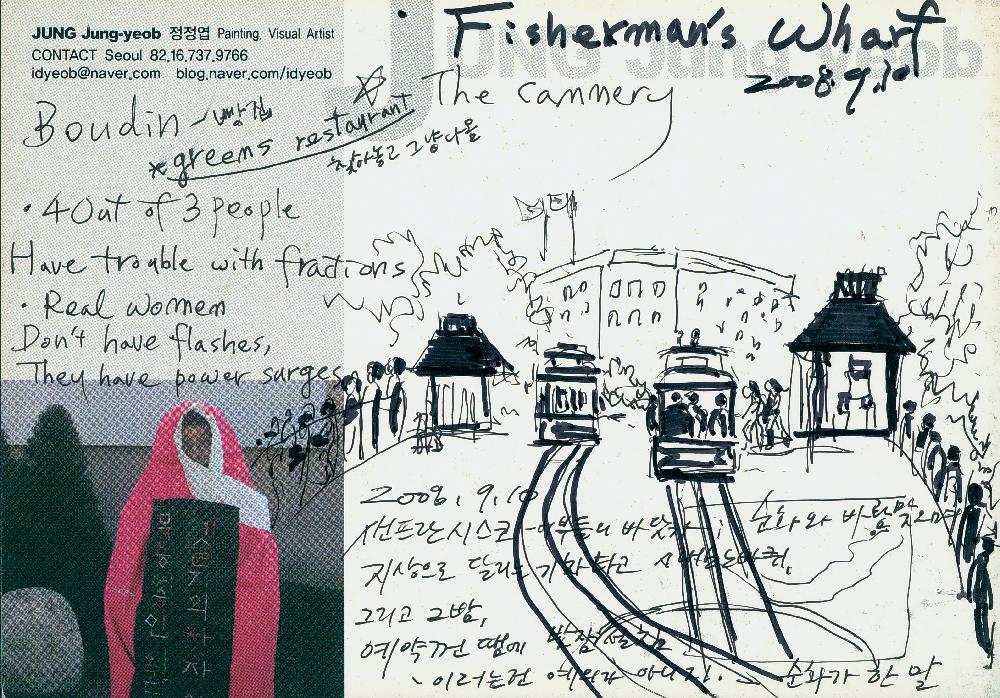 JUNG Jung-yeob 정정엽 Painting, Visual Artist
CONTACT Seoul 82,16,737,9766
idyeob@naver.com blog,naver.com/idyeob
JUNG Jung-yeob
Fisherman's Wharf
2008.9.10
The cannery
Boudin 빵집
*greens restaurant
찾아놓고 그냥나옴
· 4 Out of 3 people
Have trouble with fractions
· Real women
Don't have flashes,
They have power surges
2008.9.10
샌프란시스코 바닷가; 순화와 바람맞으며
지상으로 달리는 기차타고 시내한바퀴,
그리고 그밤,
예약건 땜에 밤잠설침
이러는건 예의가 아니지. 순화가 한 말